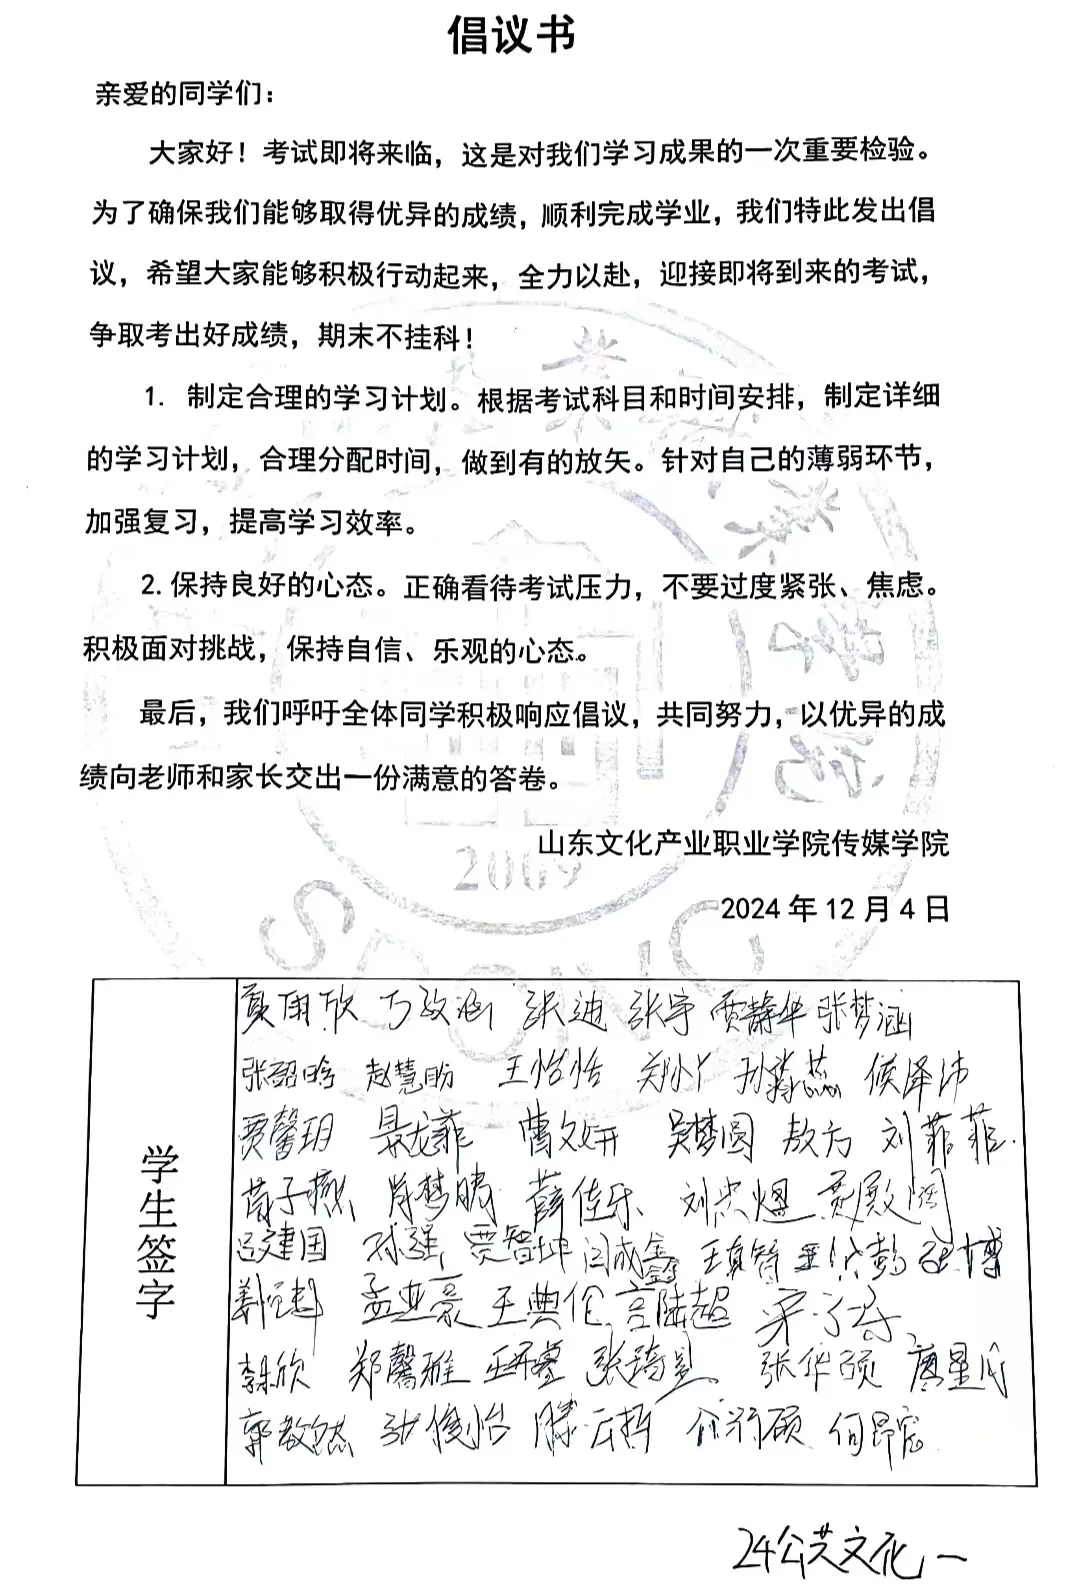 倡议书
亲爱的同学们：
大家好！考试即将来临，这是对我们学习成果的一次重要检验。
为了确保我们能够取得优异的成绩，顺利完成学业，我们特此发出倡
议，希望大家能够积极行动起来，全力以赴，迎接即将到来的考试，
争取考出好成绩，期末不挂科！
1. 制定合理的学习计划。根据考试科目和时间安排，制定详细
的学习计划，合理分配时间，做到有的放矢。针对自己的薄弱环节，
加强复习，提高学习效率。
2.保持良好的心态。正确看待考试压力，不要过度紧张、焦虑。
积极面对挑战，保持自信、乐观的心态。
最后，我们呼吁全体同学积极响应倡议，共同努力，以优异的成
绩向老师和家长交出一份满意的答卷。
山东文化产业职业学院传媒学院
2009
2024 年 12 月 4 日
学生签字
张迪 张宇 贾静华 张梦涵
张韶晗 赵慧盼 王怡怡 侯泽沛
贾馨玥 曹文妍 吴梦圆 敖方 刘菲菲
肖梦晴 薛佳乐
吕建国 孙强 贾智坤 闫成鑫 王真智
孟亚豪 王典伦
郑馨雅 张华硕
张俊怡 滕云哲
24公共文化一